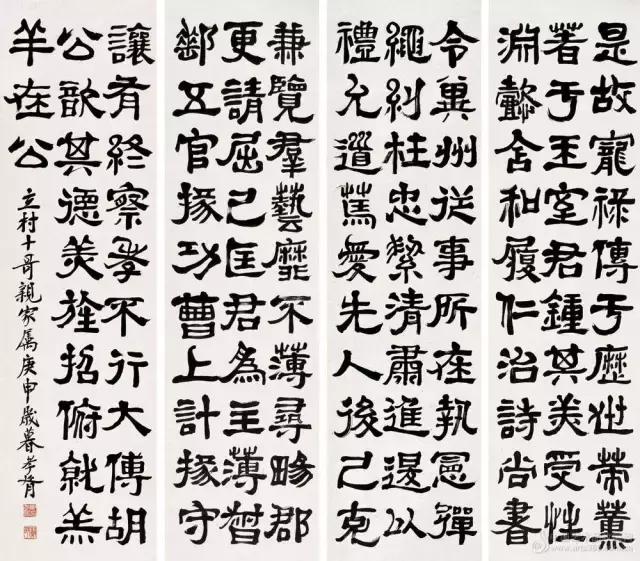 是故寵祿傳于歷世帶薰
著于王室君鍾其美受性
淵懿含和履仁治詩尚書
令冀州從事所在執憲彈
繩糾枉忠絜清肅進退以
禮允道篤愛先人後己克
兼覽羣藝靡不薄尋暢郡
更請屈己匡君為主薄督
郵五官掾功曹上計掾守
讓有終察孝不行大傅胡
公歆其德美旌招俯就羔
羊在公
立村十哥親家屬庚申歲暮孝胥